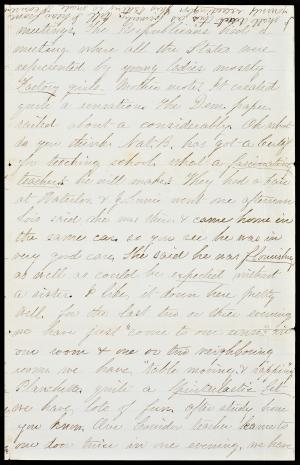 meetings. The Republicans had a
meeting where all the States were
represented by young ladies mostly
Factory girls. Mother writes it created
quite a sensation. The Dem. paper
railed about a considerably. Oh what
do you think Nat. B. has got a Certif
for teaching school. what a fascinating
teacher he will make. They had a Fair
at Waterloo & Jimmie went one afternoon
Lois said she was there & came home in
the same car. so you see he was in
very good care, she said he was flourishing
as well as could be expected without
a sister. I like it down here pretty
well. for the last two or three evenings
we have just "come to our senses" in
our room & one or two neighboring
rooms we have "table moving, & rapping"
Blanchette. quite a Spiritualistic
we have lots of fun. after study hour
you know. Our Corridor teacher came to
our door twice in one evening, we have